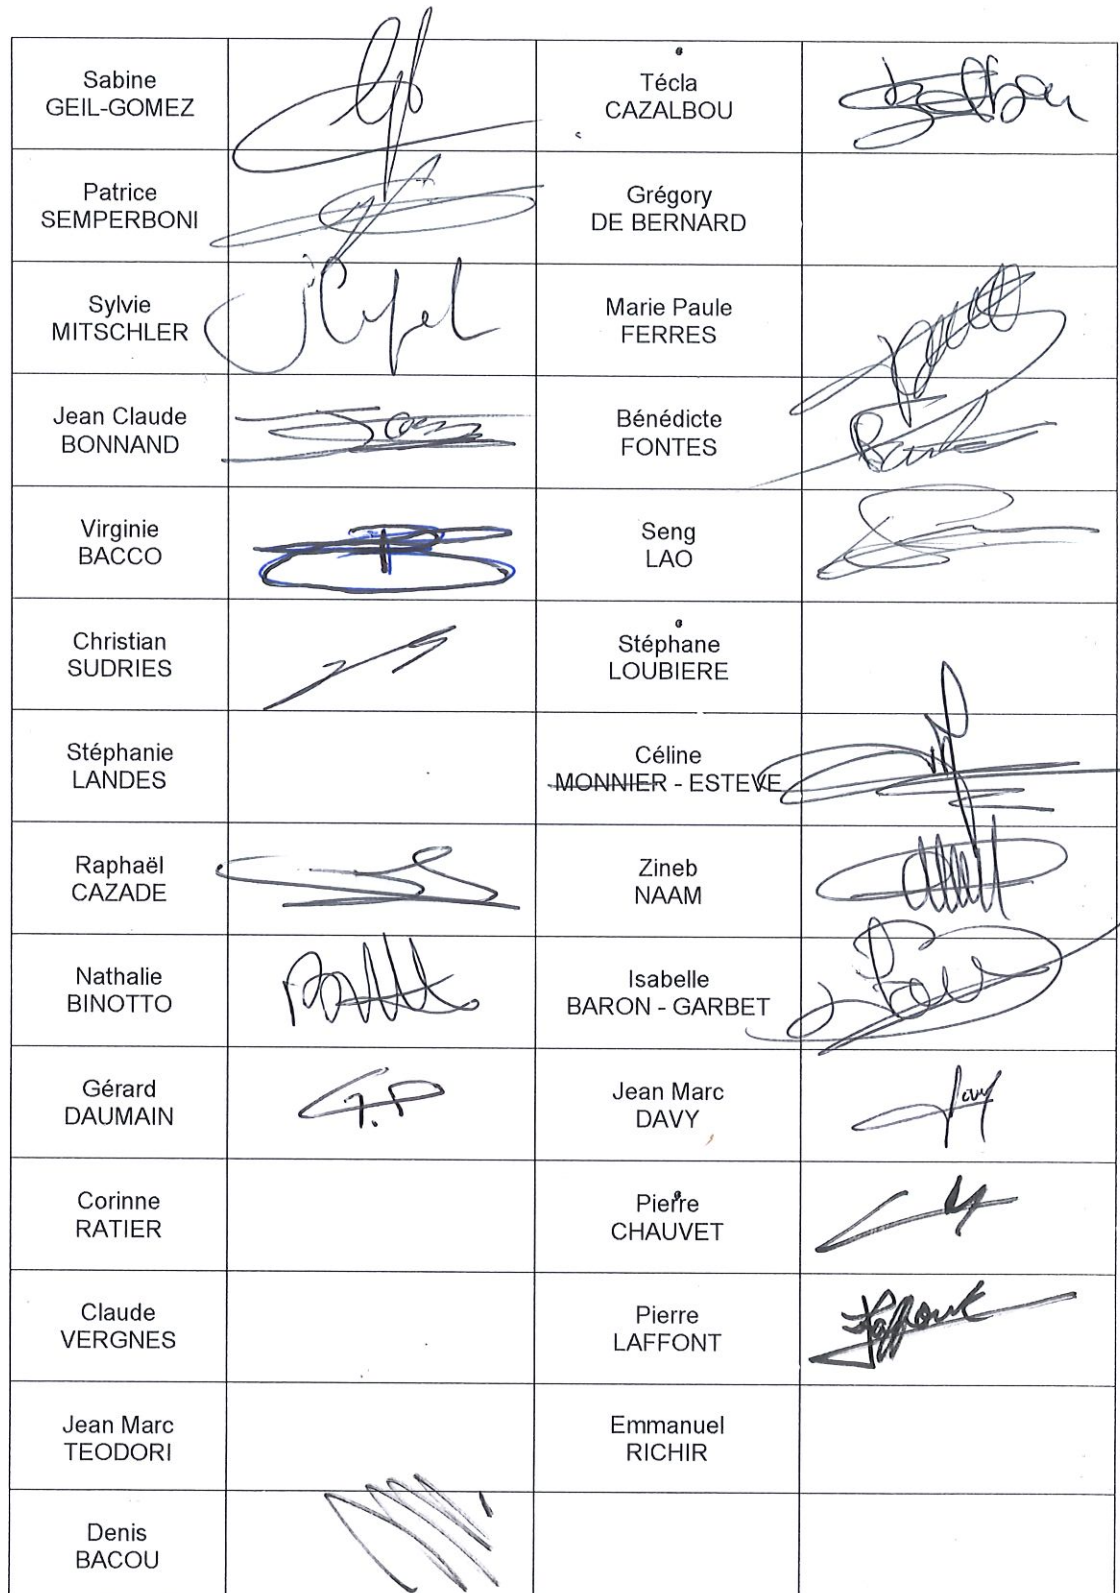 Sabine
GEIL-GOMEZ
Técla
CAZALBOU
Patrice
SEMPERBONI
Grégory
DE BERNARD
Sylvie
MITSCHLER
Marie Paule
FERRES
Jean Claude
BONNAND
Bénédicte
FONTES
Virginie
BACCO
Seng
LAO
Christian
SUDRIES
Stéphane
LOUBIERE
Stéphanie
LANDES
Céline
MONNIER - ESTEVE
Raphaël
CAZADE
Zineb
NAAM
Nathalie
BINOTTO
Isabelle
BARON - GARBET
Gérard
DAUMAIN
G.D
Jean Marc
DAVY
Davy
Corinne
RATIER
Pierre
CHAUVET
Claude
VERGNES
Pierre
LAFFONT
Laffont
Jean Marc
TEODORI
Emmanuel
RICHIR
Denis
BACOU